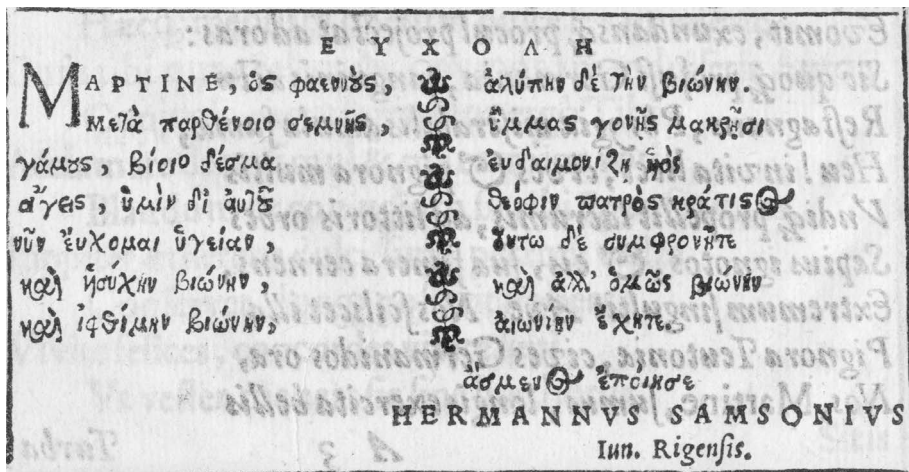 ΕΥΧΟΛΗ
ΜΑΡΤΙΝΕ, ὃς φαεννοὺς,
Μετὰ παρθένοιο σεμνῆς,
γάμους, βίοιο δέσμα
ἄγεις, ὑμὶν δὶ ἀυτοῦ
νῦν ἔυχομαι ὑγείαν,
καὶ ἡσύχην βιώνην,
καὶ ἰφθίμην βιώνην,
ἀλύπην δὲ τὴν βιώνην.
ὕμμας γονῆς μακρῇσι
ἐυδαιμονίζῃ
θεόφιν πατρὸς κράτιστος
ὅυτω δὲ συμφρονῆτε
καὶ ἀλλ' ὁμῶς βιώνην
αἰωνίην ἔχητε.
ἄσμενος ἐποίησε
HERMANNVS SAMSONIVS
Iun. Rigensis.